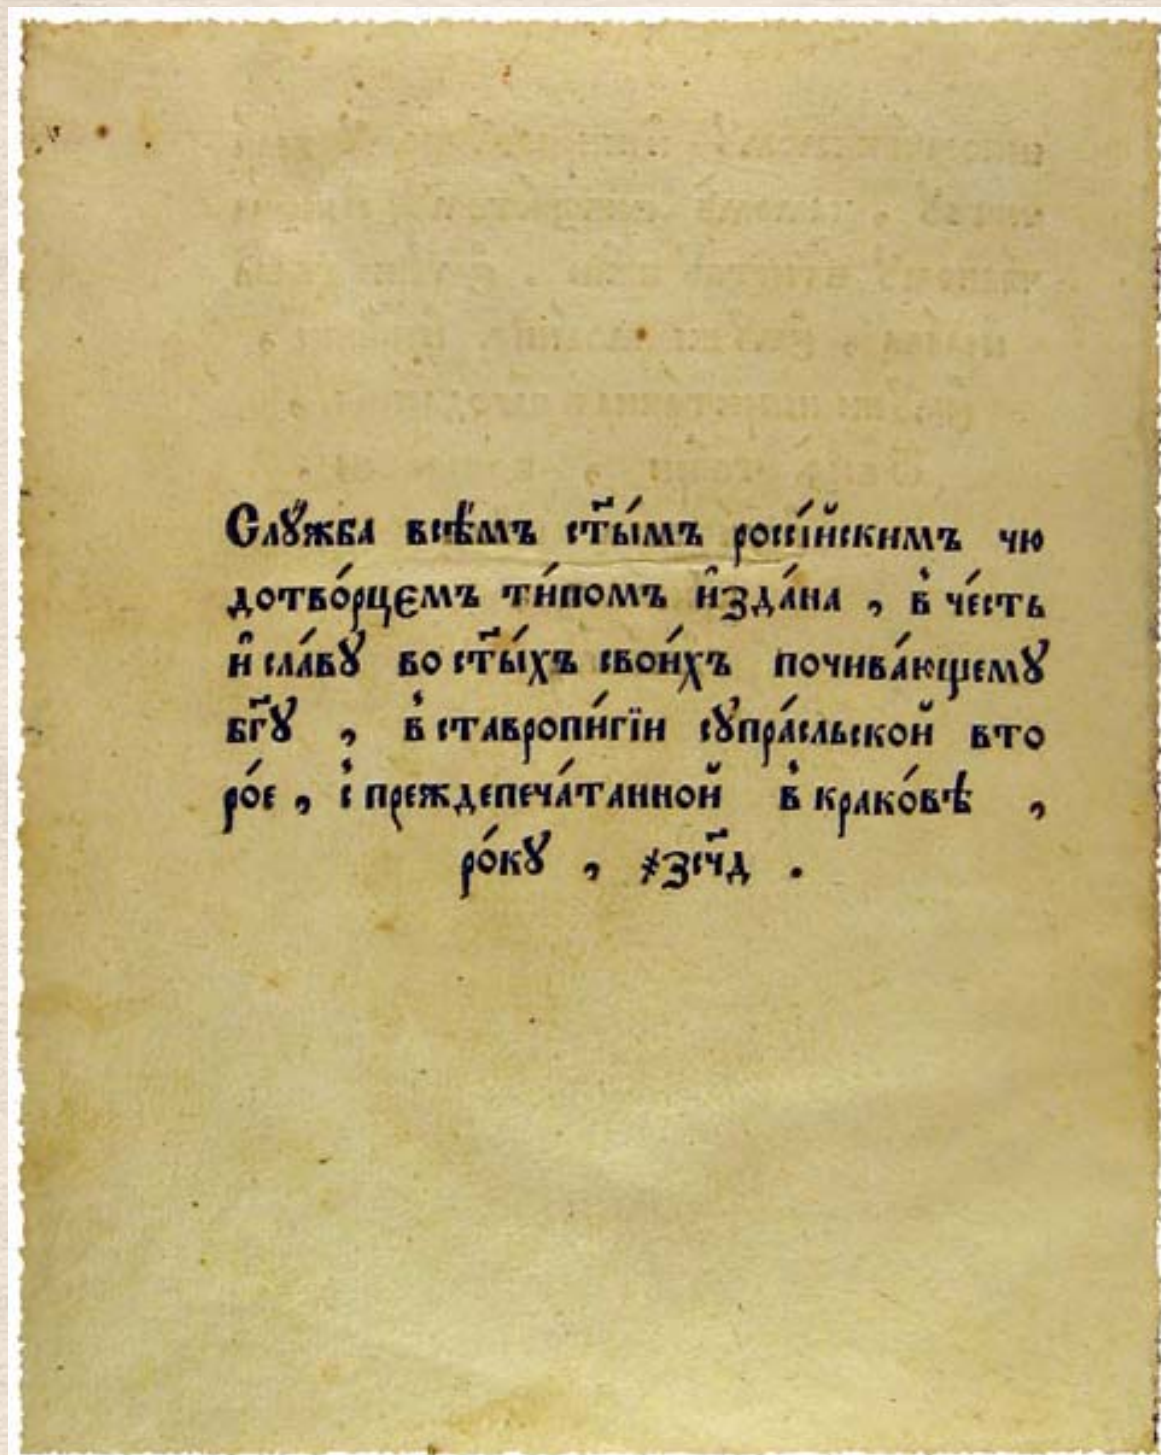 Слꙋ́жба всѣ̑мъ ст҃ы́мъ россі́йскимъ чю
дотво́рцємъ ти́помъ и҆зда́на , в̾ че́сть
и҆ сла́вꙋ во ст҃ы́хъ свои́хъ почива́ющемꙋ
бг҃ꙋ , в̾ ставропи́гїи сꙋпра́сльской вто
ро́е , с̾ преждепеча́танной в̾ крако́вѣ ,
ро́кꙋ , ҂зсч҃д .